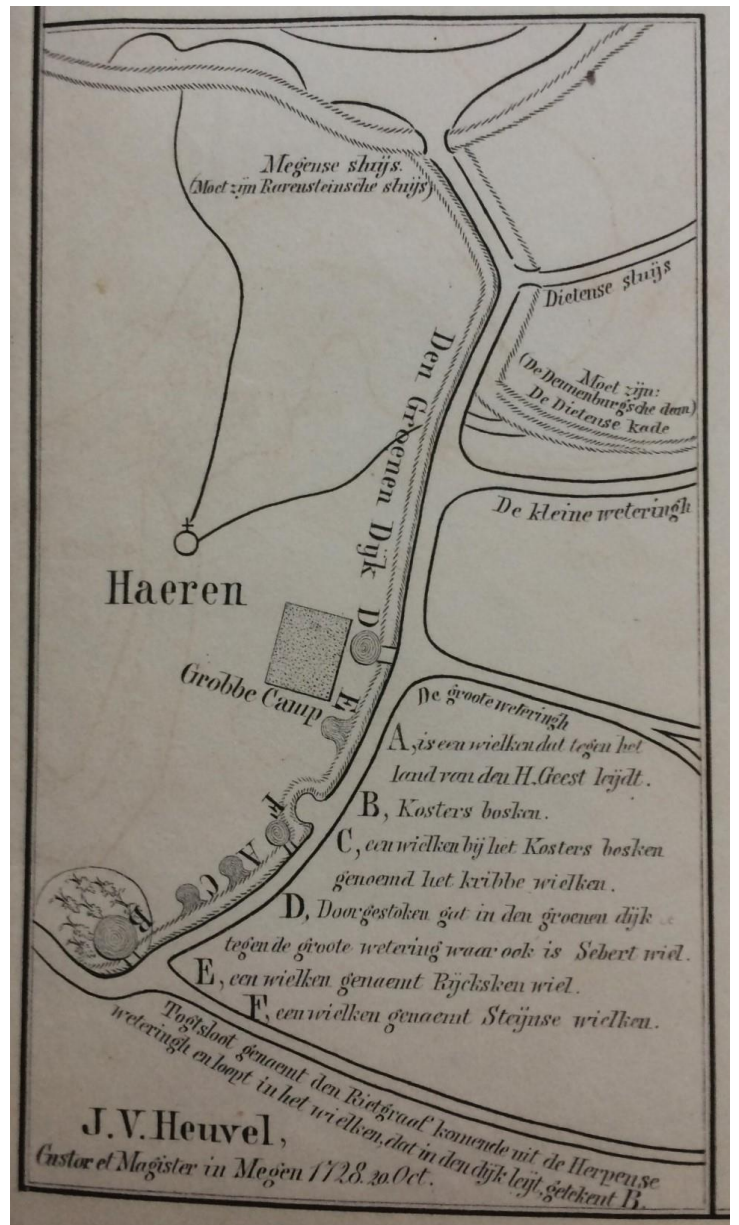 Megense sluijs.
(Moet zijn Ravensteinsche sluijs)
Dietense sluijs
Moet zijn:
(De Deunenburg'sche dam)
De Dietense kade
Den Groenen Dijk
De kleine weteringh
Haeren
D
Grobbe Camp
E
De groote weteringh
F
A
C
B
A, is een wielken dat tegen het
land van den H. Geest leijdt.
B, Kosters bosken.
C, een wielken bij het Kosters bosken
genoemd het kribbe wielken.
D, Doorgestoken gat in den groenen dijk
tegen de groote wetering waar ook is Sebert wiel.
E, een wielken genaemt Rijcksken wiel.
F, een wielken genaemt Steijnse wielken.
Togtsloot genaemt den Rietgraaf komende uit de Herpense
weteringh en loept in het wielken, dat in den dijk leijt, getekent B.
J. V. Heuvel,
Custor et Magister in Megen 1728. 20. Oct.